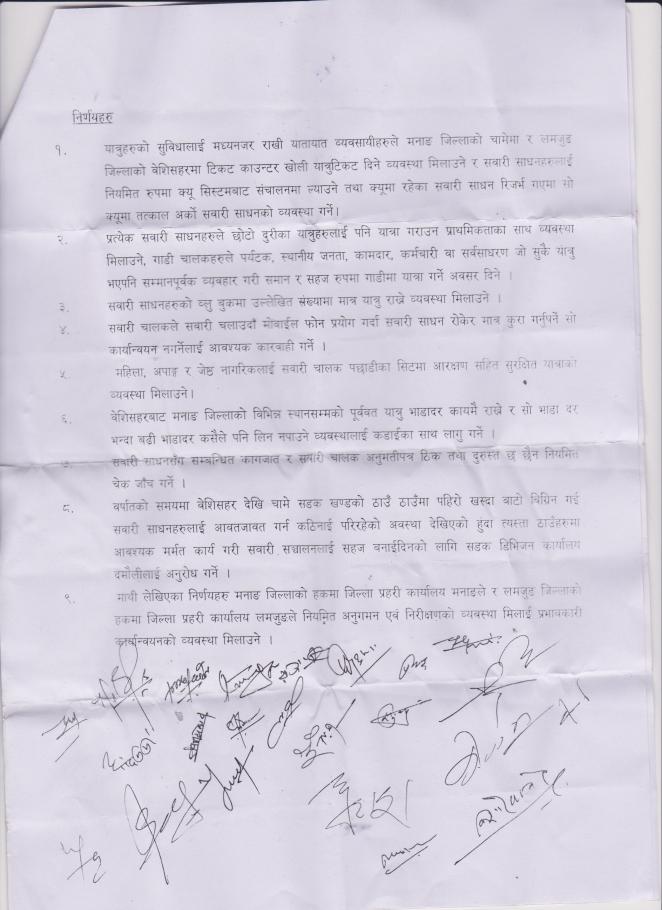 निर्णयहरु
१. यात्रुहरुको सुविधालाई मध्यनजर राखी यातायात व्यवसायीहरुले मनाङ जिल्लाको चामेमा र लमजुङ
जिल्लाको बेशिसहरमा टिकट काउन्टर खोली यात्रुटिकट दिने व्यवस्था मिलाउने र सवारी साधनहरुलाई
नियमित रुपमा क्यू सिस्टमबाट संचालनमा ल्याउने तथा क्यूमा रहेका सवारी साधन रिजर्भ गएमा सो
क्यूमा तत्काल अर्को सवारी साधनको व्यवस्था गर्ने।
२. प्रत्येक सवारी साधनहरुले छोटो दुरीका यात्रुहरुलाई पनि यात्रा गराउन प्राथमिकताका साथ व्यवस्था
मिलाउने, गाडी चालकहरुले पर्यटक, स्थानीय जनता, कामदार, कर्मचारी वा सर्वसाधरण जो सुकै यात्रु
भएपनि सम्मानपूर्वक व्यवहार गरी समान र सहज रुपमा गाडीमा यात्रा गर्ने अवसर दिने ।
३. सवारी साधनहरुको ब्लु बुकमा उल्लेखित संख्यामा मात्र यात्रु राख्ने व्यवस्था मिलाउने ।
४. सवारी चालकले सवारी चलाउदाँ मोबाईल फोन प्रयोग गर्दा सवारी साधन रोकेर मात्र कुरा गर्नुपर्ने सो
कार्यान्वयन नगर्नेलाई आवश्यक कारवाही गर्ने ।
५ महिला, अपाङ्ग र जेष्ठ नागरिकलाई सवारी चालक पछाडीका सिटमा आरक्षण सहित सुरक्षित यात्राको
व्यवस्था मिलाउने।
६. बेशिसहरबाट मनाङ जिल्लाको विभिन्न स्थानसम्मको पूर्ववत यात्रु भाडादर कायमै राख्ने र सो भाडा दर
भन्दा बढी भाडादर कसैले पनि लिन नपाउने व्यवस्थालाई कडाईका साथ लागु गर्ने ।
७. सवारी साधनसँग सम्बन्धित कागजात र सवारी चालक अनुमतीपत्र ठिक तथा दुरुस्त छ छैन नियमित
चेक जाँच गर्ने ।
८. वर्षातको समयमा बेशिसहर देखि चामे सडक खण्डको ठाउँ ठाउँमा पहिरो खस्दा बाटो बिग्रिन गई
सवारी साधनहरुलाई आवतजावत गर्न कठिनाई परिरहेको अवस्था देखिएको हुंदा त्यस्ता ठाउँहरुमा
आवश्यक मर्मत कार्य गरी सवारी सञ्चालनलाई सहज बनाईदिनको लागि सडक डिभिजन कार्यालय
दमौलीलाई अनुरोध गर्ने ।
९. माथी लेखिएका निर्णयहरु मनाङ जिल्लाको हकमा जिल्ला प्रहरी कार्यालय मनाङले र लमजुङ जिल्लाको
हकमा जिल्ला प्रहरी कार्यालय लमजुङले नियमित अनुगमन एवं निरीक्षणको व्यवस्था मिलाई प्रभावकारी
कार्यान्वयनको व्यवस्था मिलाउने ।